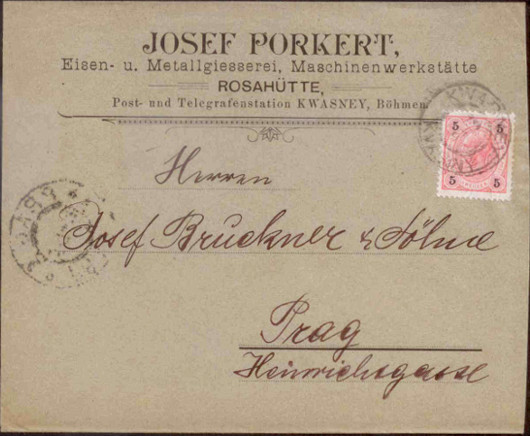 JOSEF PORKERT,
Eisen- u. Metallgiesserei, Maschinenwerkstätte
ROSAHÜTTE,
Post- und Telegrafenstation KWASNEY, Böhmen.
5 5
5 5
Herren
Josef Bruckner & Söhne
Prag
Heinrichsgasse